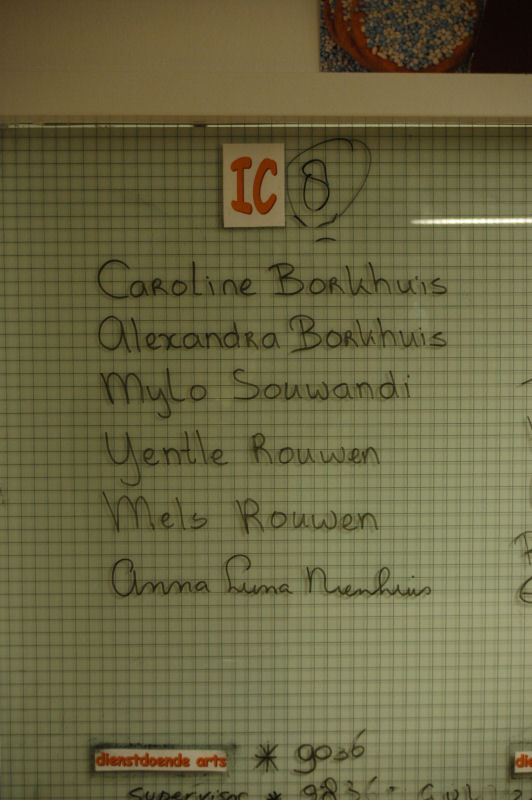 IC 8
Caroline Borkhuis
Alexandra Borkhuis
Mylo Souwandi
Yentle Rouwen
Mels Rouwen
Anna Luna Nienhuis
dienstdoende arts * 9036
supervisor * 9836
die